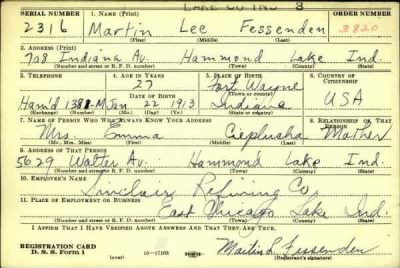 LAKE CO IND 3
SERIAL NUMBER 1. NAME (Print) ORDER NUMBER
2316 Martin Lee Fessenden 3820
(First) (Middle) (Last)
2. ADDRESS (Print)
708 Indiana Av. Hammond Lake Ind.
(Number and street or R. F. D. number) (Town) (County) (State)
3. TELEPHONE 4. AGE IN YEARS 5. PLACE OF BIRTH 6. COUNTRY OF CITIZENSHIP
27 Fort Wayne
DATE OF BIRTH (Town or county)
Ham'd 1388-M Jan 22 1913 Indiana USA
(Exchange) (Number) (Mo.) (Day) (Yr.) (State or country)
7. NAME OF PERSON WHO WILL ALWAYS KNOW YOUR ADDRESS 8. RELATIONSHIP OF THAT PERSON
Mrs. Emma Cieplucha Mother
(Mr., Mrs., Miss) (First) (Middle) (Last)
9. ADDRESS OF THAT PERSON
5629 Walter Av. Hammond Lake Ind.
(Number and street or R. F. D. number) (Town) (County) (State)
10. EMPLOYER'S NAME
Sinclair Refining Co.
11. PLACE OF EMPLOYMENT OR BUSINESS
East Chicago Lake Ind.
(Number and street or R. F. D. number) (Town) (County) (State)
I AFFIRM THAT I HAVE VERIFIED ABOVE ANSWERS AND THAT THEY ARE TRUE.
REGISTRATION CARD
D. S. S. Form 1 (over) 16—17105 Martin L. Fessenden
(Registrant's signature)